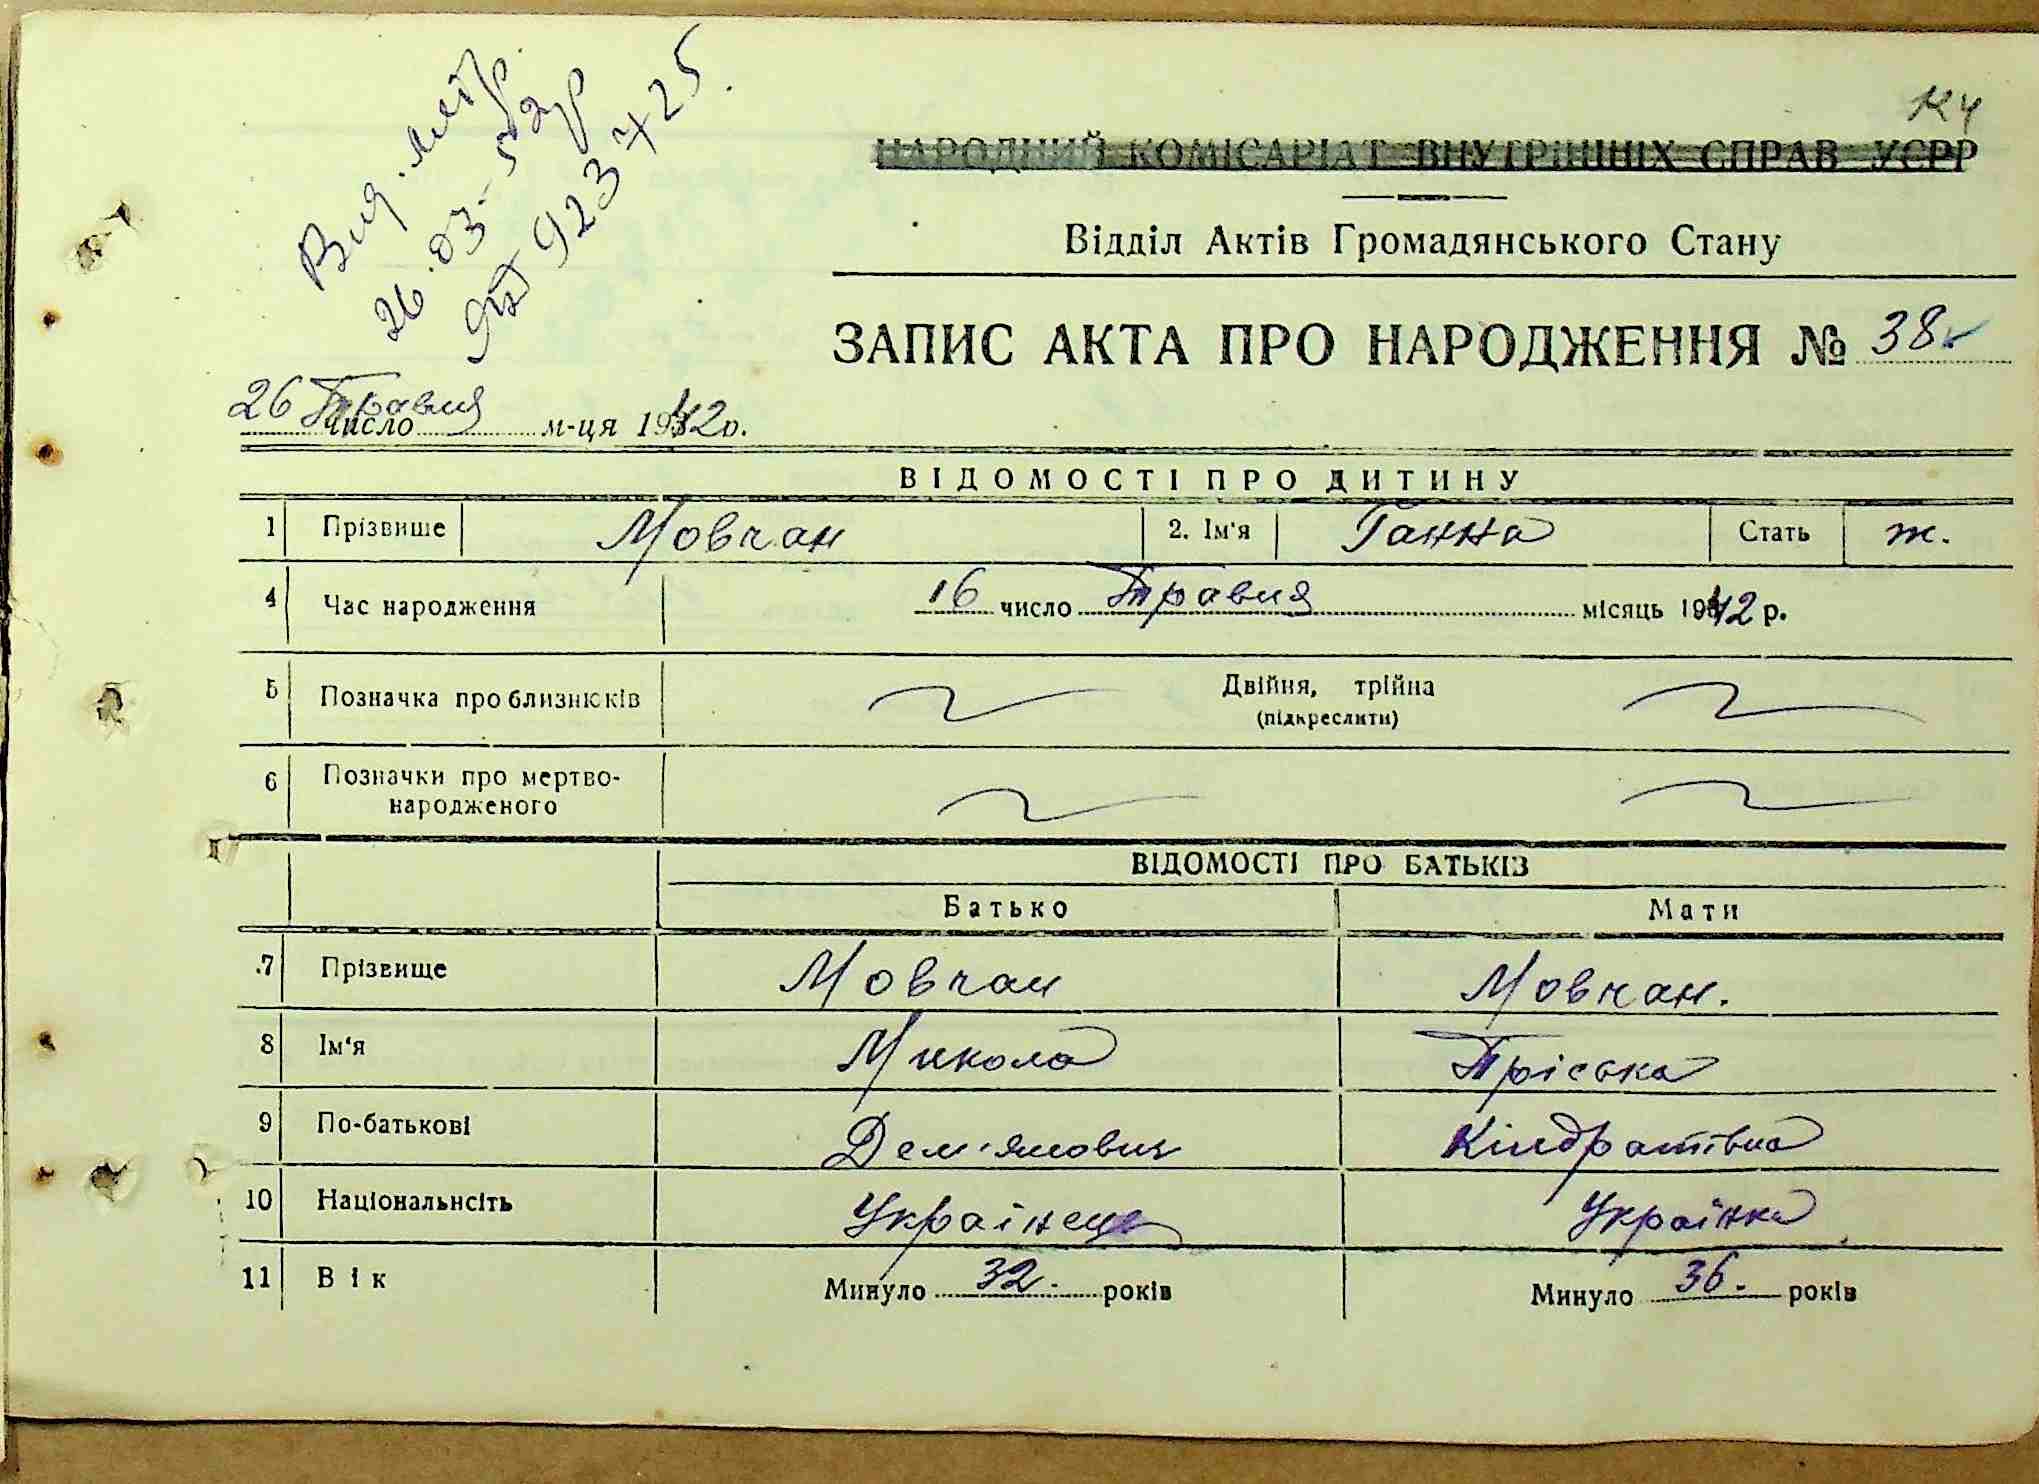 Вид. метр
26.03-52р
923425.
124
НАРОДНИЙ КОМІСАРІАТ ВНУТРІШНІХ СПРАВ УСРР
Відділ Актів Громадянського Стану
ЗАПИС АКТА ПРО НАРОДЖЕННЯ № 38
26 Травня число м-ця 1942 р.
ВІДОМОСТІ ПРО ДИТИНУ
1 Прізвище Мовчан 2. Ім'я Ганна Стать ж.
4 Час народження 16 число Травня місяць 1942 р.
5 Позначка про близнюків Двійня, трійна
(підкреслити)
6 Позначки про мертво-
народженого
ВІДОМОСТІ ПРО БАТЬКІВ
Батько Мати
7 Прізвище Мовчан Мовчан.
8 Ім'я Микола Пріська
9 По-батькові Дем'янович Кіндратівна
10 Національність Українець Українка
11 Вік Минуло 32. років Минуло 36. років